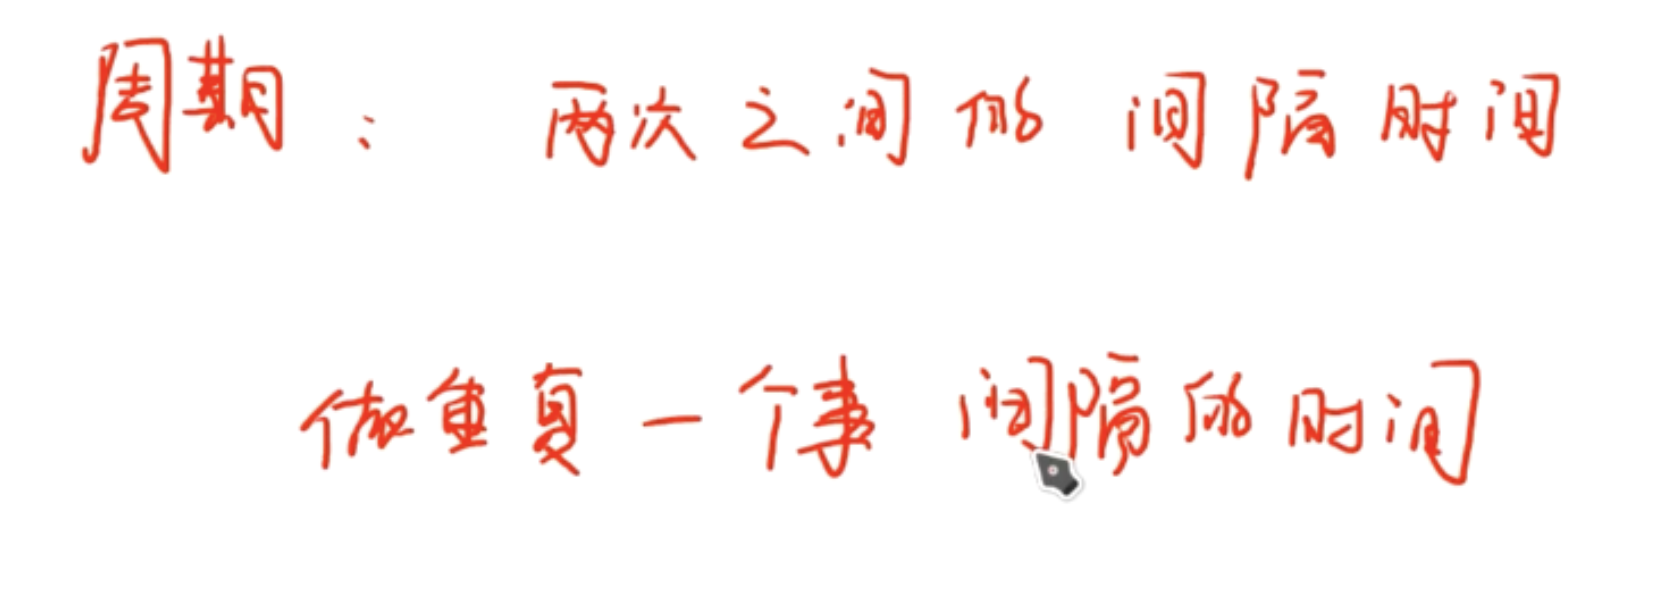 周期： 两次之间的间隔时间
做重复一个事间隔的时间